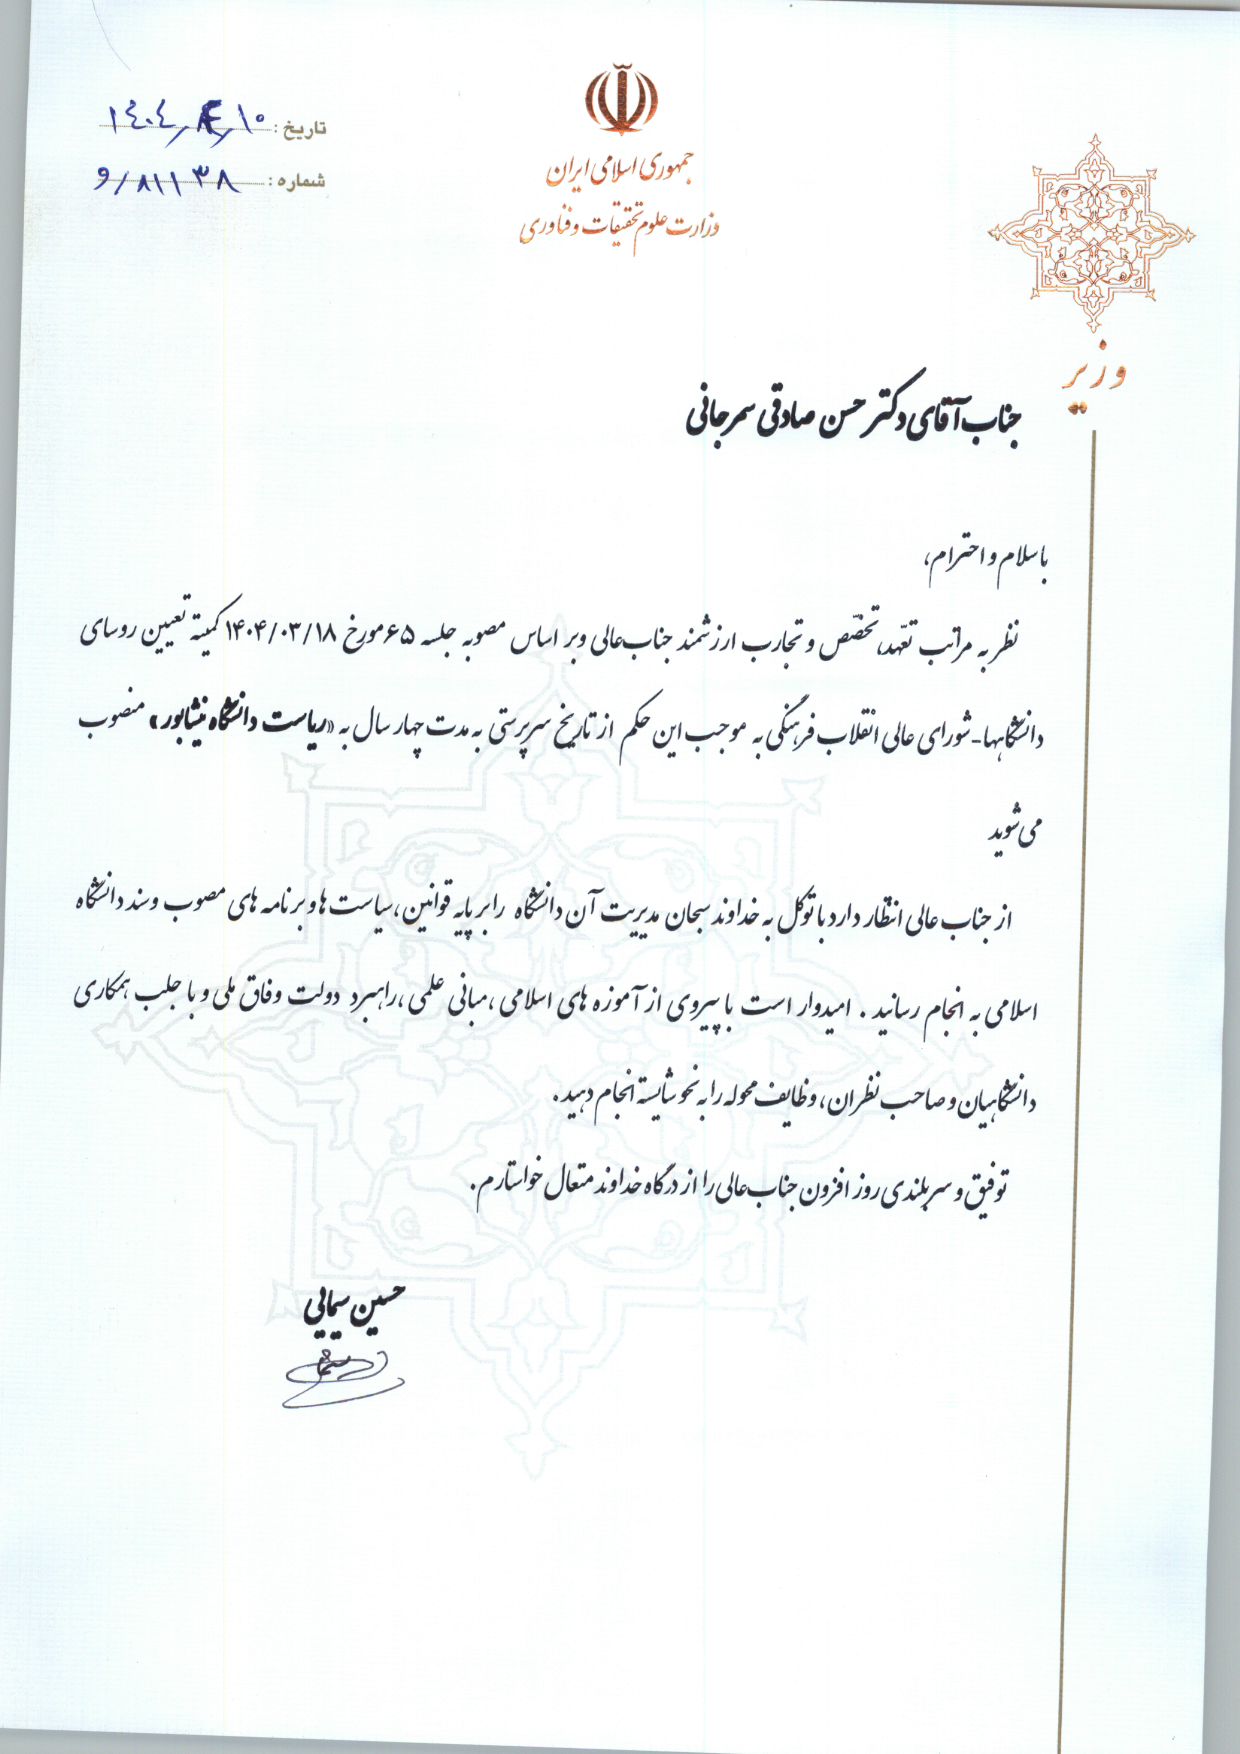 جمهوری اسلامی ایران
وزارت علوم تحقیقات و فناوری
تاریخ : ۱۴۰۴/۴/۱۰
شماره : ۸۱۱۳۸/و
وزیر
جناب آقای دکتر حسن صادقی سمرجانی
با سلام و احترام،
نظر به مراتب تعهد، تخصّص و تجارب ارزشمند جناب‌عالی و بر اساس مصوبه جلسه ۶۵ مورخ ۱۴۰۴/۰۳/۱۸ کمیته تعیین روسای
دانشگاهها-شورای عالی انقلاب فرهنگی به موجب این حکم از تاریخ سرپرستی به مدت چهار سال به «ریاست دانشگاه نیشابور» منصوب
می شوید
از جناب عالی انتظار دارد با توکل به خداوند سبحان مدیریت آن دانشگاه را بر پایه قوانین ،سیاست ها و برنامه های مصوب و سند دانشگاه
اسلامی به انجام رسانید . امیدوار است با پیروی از آموزه های اسلامی ،مبانی علمی ،راهبرد دولت وفاق ملی و با جلب همکاری
دانشگاهیان و صاحب نظران، وظایف محوله را به نحو شایسته انجام دهید.
توفیق و سربلندی روز افزون جناب‌عالی را از درگاه خداوند متعال خواستارم.
حسین سیمایی